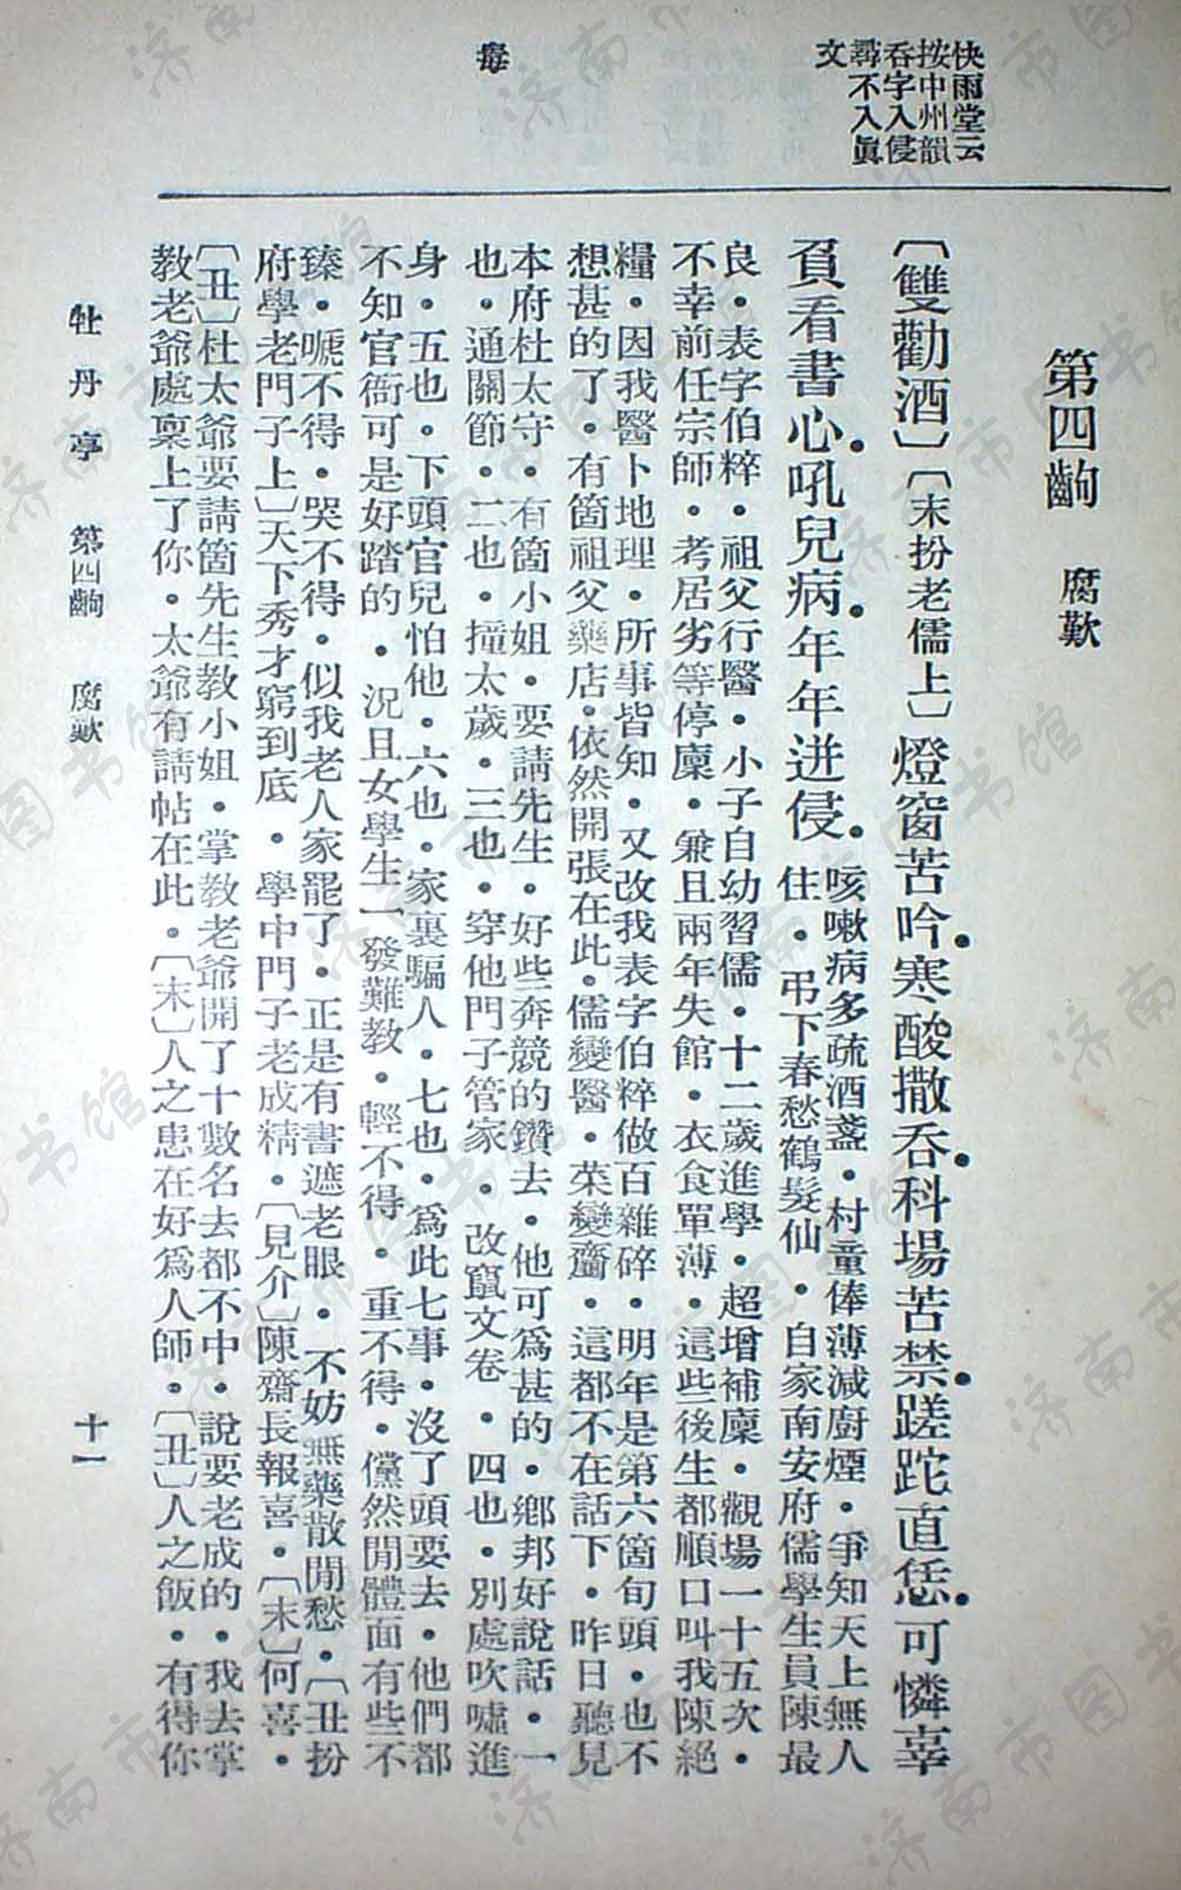 快雨堂云
按中州韻
吞字入侵
尋不入眞
文
毒
第四齣　腐歎
〔雙勸酒〕〔末扮老儒上〕燈窗苦吟．寒酸撒吞．科場苦禁．蹉跎直恁．可憐辜
負看書心．吼兒病年年迸侵．
咳嗽病多疏酒盞．村童俸薄減廚煙．爭知天上無人
住．弔下春愁鶴髮仙．自家南安府儒學生員陳最
良．表字伯粹．祖父行醫．小子自幼習儒．十二歲進學．超增補廩．觀場一十五次．
不幸前任宗師．考居劣等停廩．兼且兩年失館．衣食單薄．這些後生都順口叫我陳絕
糧．因我醫卜地理．所事皆知．又改我表字伯粹做百雜碎．明年是第六箇旬頭．也不
想甚的了．有箇祖父藥店．依然開張在此．儒變醫．菜變虀．這都不在話下．昨日聽見
本府杜太守．有箇小姐．要請先生．好些奔競的鑽去．他可爲甚的．鄉邦好說話．一
也．通關節．二也．撞太歲．三也．穿他門子管家．改竄文卷．四也．別處吹噓進
身．五也．下頭官兒怕他．六也．家裏騙人．七也．爲此七事．沒了頭要去．他們都
不知官衙可是好踏的．況且女學生一發難教．輕不得．重不得．儻然閒體面有些不
臻．嗁不得．哭不得．似我老人家罷了．正是有書遮老眼．不妨無藥散閒愁．〔丑扮
府學老門子上〕天下秀才窮到底．學中門子老成精．〔見介〕陳齋長報喜．〔末〕何喜．
〔丑〕杜太爺要請箇先生教小姐．掌教老爺開了十數名去都不中．說要老成的．我去掌
教老爺處稟上了你．太爺有請帖在此．〔末〕人之患在好爲人師．〔丑〕人之飯．有得你
牡丹亭　第四齣　腐歎　十一
济南市图书馆